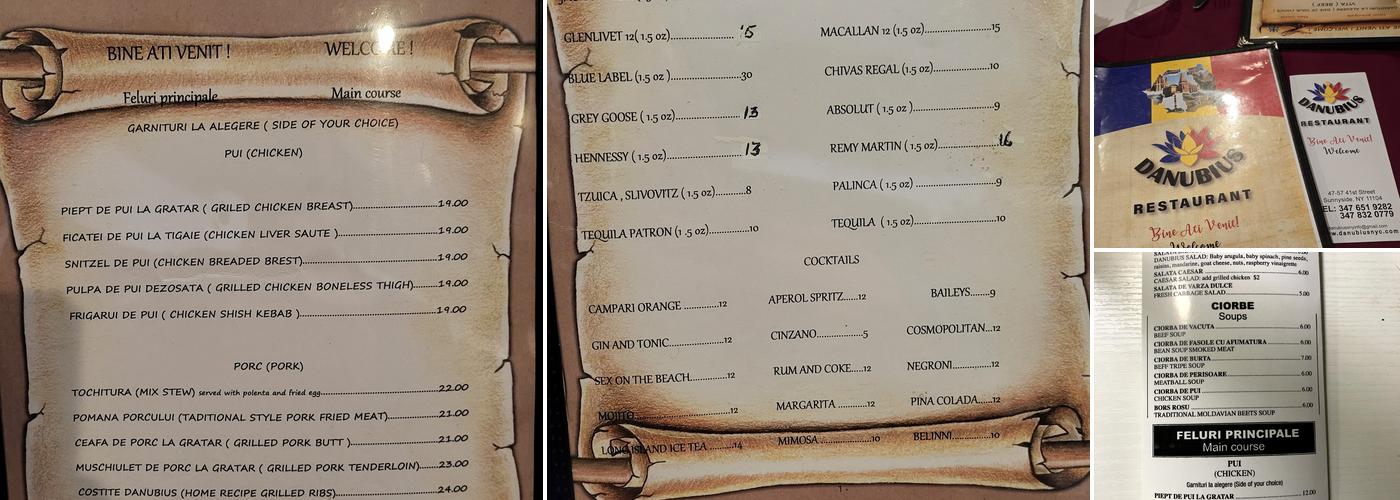 BINE ATI VENIT !
WELCOME !
Feluri principale
Main course
GARNITURI LA ALEGERE ( SIDE OF YOUR CHOICE)
PUI (CHICKEN)
PIEPT DE PUI LA GRATAR ( GRILED CHICKEN BREAST)..........19.00
FICATEI DE PUI LA TIGAIE (CHICKEN LIVER SAUTE )..........19.00
SNITZEL DE PUI (CHICKEN BREADED BREST)..........19.00
PULPA DE PUI DEZOSATA ( GRILLED CHICKEN BONELESS THIGH)..........19.00
FRIGARUI DE PUI ( CHICKEN SHISH KEBAB )..........19.00
PORC (PORK)
TOCHITURA (MIX STEW) served with polenta and fried egg..........22.00
POMANA PORCULUI (TADITIONAL STYLE PORK FRIED MEAT)..........21.00
CEAFA DE PORC LA GRATAR ( GRILLED PORK BUTT )..........21.00
MUSCHIULET DE PORC LA GRATAR ( GRILLED PORK TENDERLOIN)..........23.00
COSTITE DANUBIUS (HOME RECIPE GRILLED RIBS)..........24.00
GLENLIVET 12( 1.5 oz)..........15
MACALLAN 12 (1.5 oz)..........15
BLUE LABEL (1.5 oz )..........30
CHIVAS REGAL (1.5 oz)..........10
GREY GOOSE ( 1.5 oz)..........13
ABSOLUT ( 1.5 oz)..........9
HENNESSY ( 1.5 oz)..........13
REMY MARTIN ( 1.5 oz)..........16
TZUICA , SLIVOVITZ ( 1.5 oz)..........8
PALINCA ( 1.5 oz) ..........9
TEQUILA PATRON ( 1.5 oz)..........10
TEQUILA ( 1.5 oz)..........10
COCKTAILS
CAMPARI ORANGE ..........12
APEROL SPRITZ......12
BAILEYS.......9
GIN AND TONIC..........12
CINZANO..........5
COSMOPOLITAN...12
SEX ON THE BEACH..........12
RUM AND COKE......12
NEGRONI..........12
MOJITO..........12
MARGARITA ..........12
PINA COLADA.....12
LONG ISLAND ICE TEA .......14
MIMOSA ..........10
BELINNI..........10
DANUBIUS
RESTAURANT
Bine Ati Venit!
Welcome
DANUBIUS
RESTAURANT
Bine Ati Venit!
Welcome
47-57 41st Street
Sunnyside, NY 11104
TEL: 347 651 9282
347 832 0779
danubiusnyinfo@gmail.com
www.danubiusnyc.com
DANUBIUS SALAD: Baby arugula, baby spinach, pine seeds,
raisins, mandarine, goat cheese, nuts, raspberry vinaigrette
SALATA CAESAR..........6.00
CAESAR SALAD: add grilled chicken $2
SALATA DE VARZA DULCE
FRESH CABBAGE SALAD..........5.00
CIORBE
Soups
CIORBA DE VACUTA ..........6.00
BEEF SOUP
CIORBA DE FASOLE CU AFUMATURA ..........6.00
BEAN SOUP SMOKED MEAT
CIORBA DE BURTA ..........7.00
BEFF TRIPE SOUP
CIORBA DE PERISOARE ..........6.00
MEATBALL SOUP
CIORBA DE PUI ..........6.00
CHICKEN SOUP
BORS ROSU ..........6.00
TRADITIONAL MOLDAVIAN BEETS SOUP
FELURI PRINCIPALE
Main course
PUI
(CHICKEN)
Garnituri la alegere (Side of your choice)
PIEPT DE PUI LA GRATAR ..........12.00